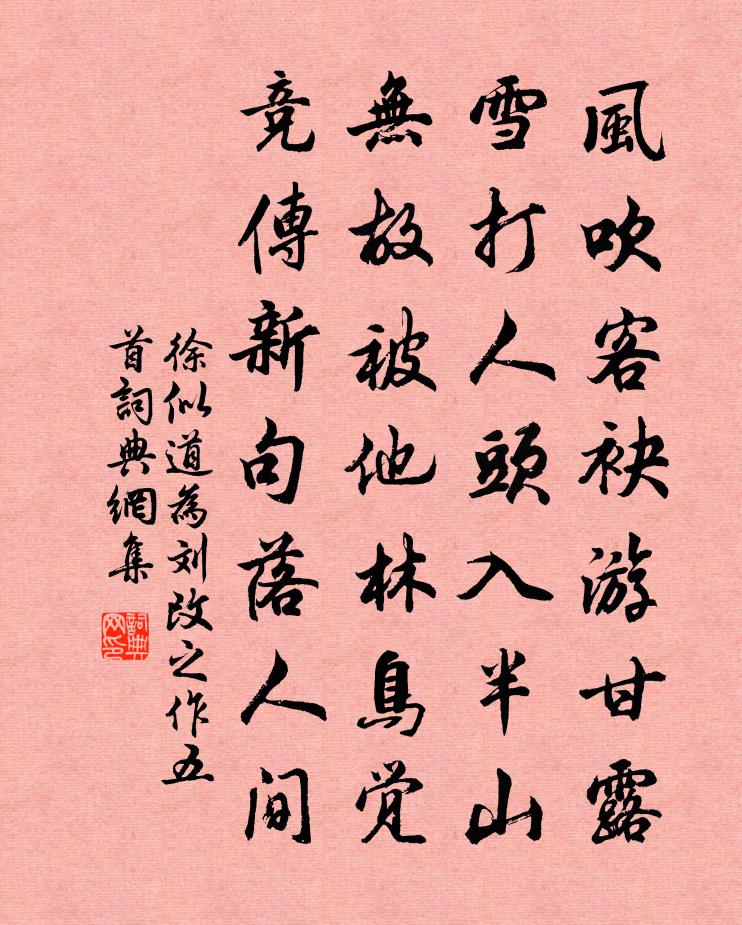 風吹客袂游甘露
雪打人頭入半山
無故被他林鳥覚
竞傳新句落人间
徐似道為刘改之作五
首詞典網集
詞典
网印